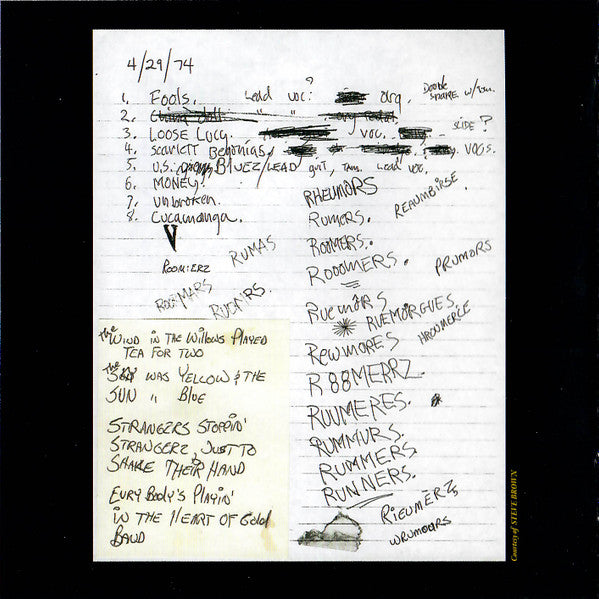 4/29/74
1. Fools. Lead voc? org. Double snare w/
2. China doll " org
3. Loose Lucy. voc. slide?
4. Scarlett Begonias. vocs.
5. U.S. Bluez/Lead guit, Tam. Lead voc.
6. Money?
7. Unbroken.
8. Cucamonga.
V
RHEUMORS
REAUMBIRSE.
RUMORS.
ROOMERS.
ROOOMERS.
PRUMORS
ROOMIERZ
RUMAS
RUEMORS
RUEMORGUES.
REWMORES
R88MERRZ.
RUUMERES.
RUMMURS.
RUMMERS
RUNNERS.
RIEUMERZ
WRUMOURS
the WIND IN THE WILLOWS PLAYED
TEA FOR TWO
the SKY WAS YELLOW & THE
SUN " BLUE
STRANGERS STOPPIN'
STRANGERZ, JUST TO
SHAKE THEIR HAND
EVRY BODY'S PLAYIN'
IN THE HEART OF GOLD
BAND
Courtesy of STEVE BROWN